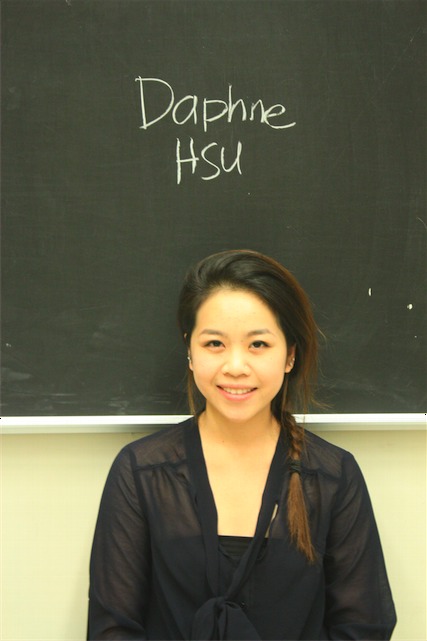 Daphne
HSU